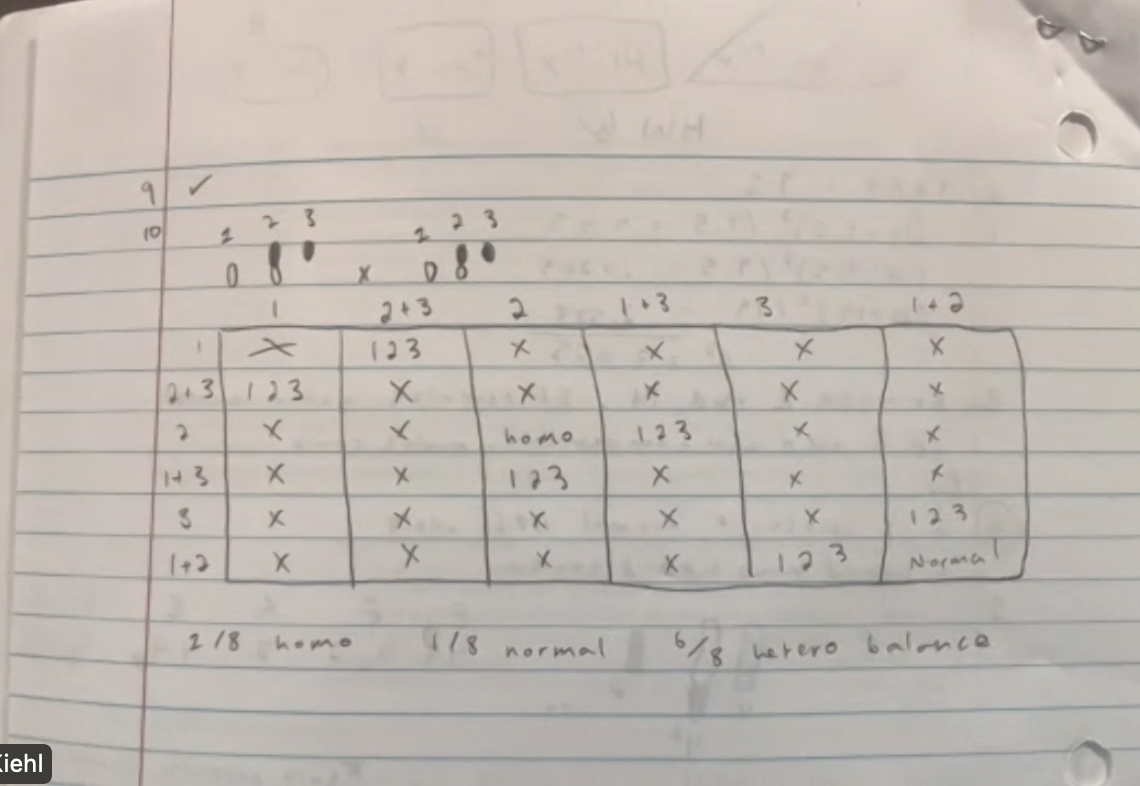 9 ✓
10 1 2 3 x 1 2 3
1 2+3 2 1+3 3 1+2
1 X 123 X X X X
2+3 123 X X X X X
2 X X homo 123 X X
1+3 X X 123 X X X
3 X X X X X 123
1+2 X X X X 123 Normal
1/8 homo 1/8 normal 6/8 hetero balance
Kiehl